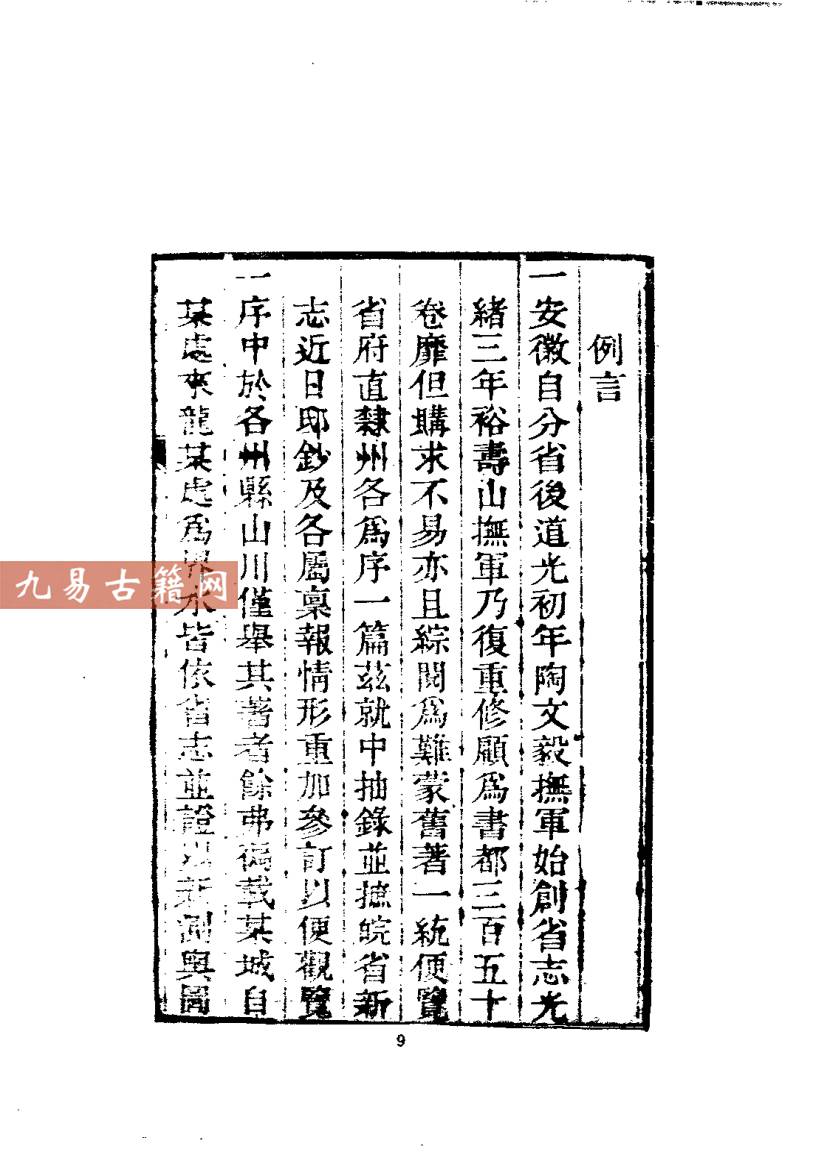 例言
一安徽自分省後道光初年陶文毅撫軍始創省志光
緒三年裕壽山撫軍乃復重修顧爲書都三百五十
卷靡但購求不易亦且綜閱爲難蒙舊著一統便覽
省府直隸州各爲序一篇茲就中抽錄並摭皖省新
志近日邸鈔及各屬稟報情形重加參訂以便觀覽
一序中於各州縣山川僅舉其著者餘弗徧載某城自
某處來龍某處爲界水皆依省志並證以新測輿圖
九易古籍网
9